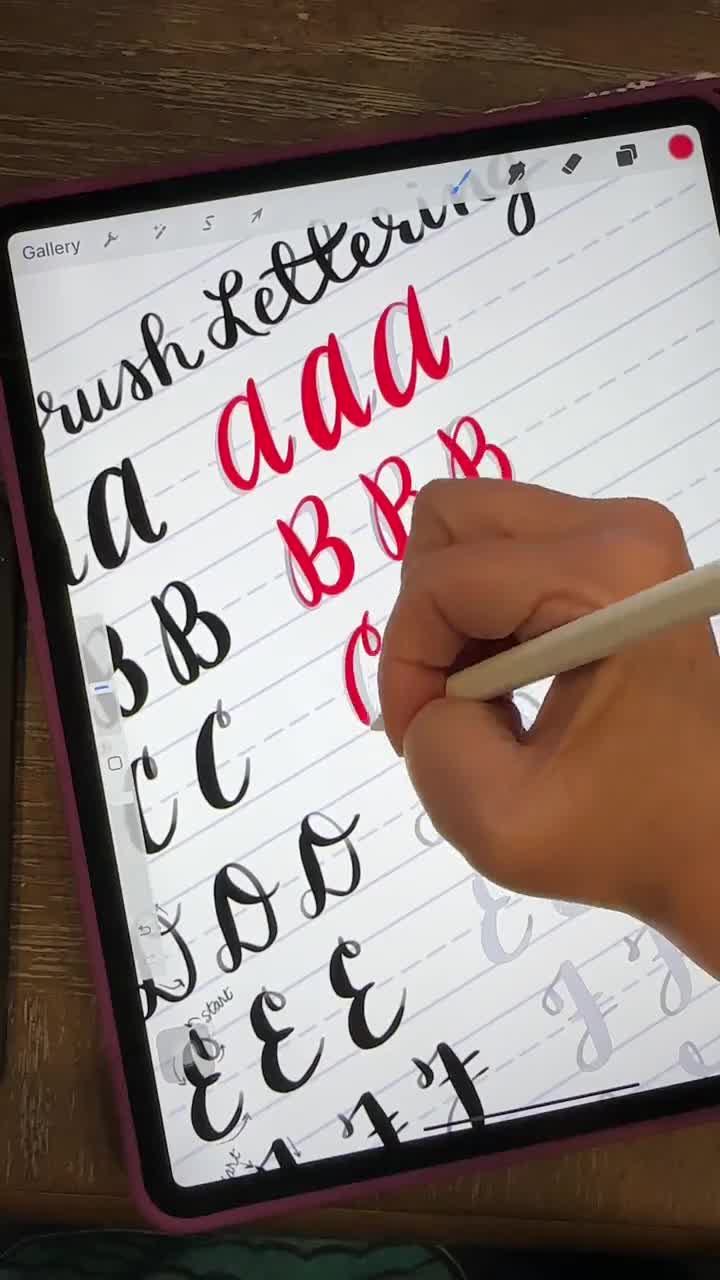 Gallery
rush Lettering
a a a a
B B B B B
C C C
D D D
start
E E E E
F F F F